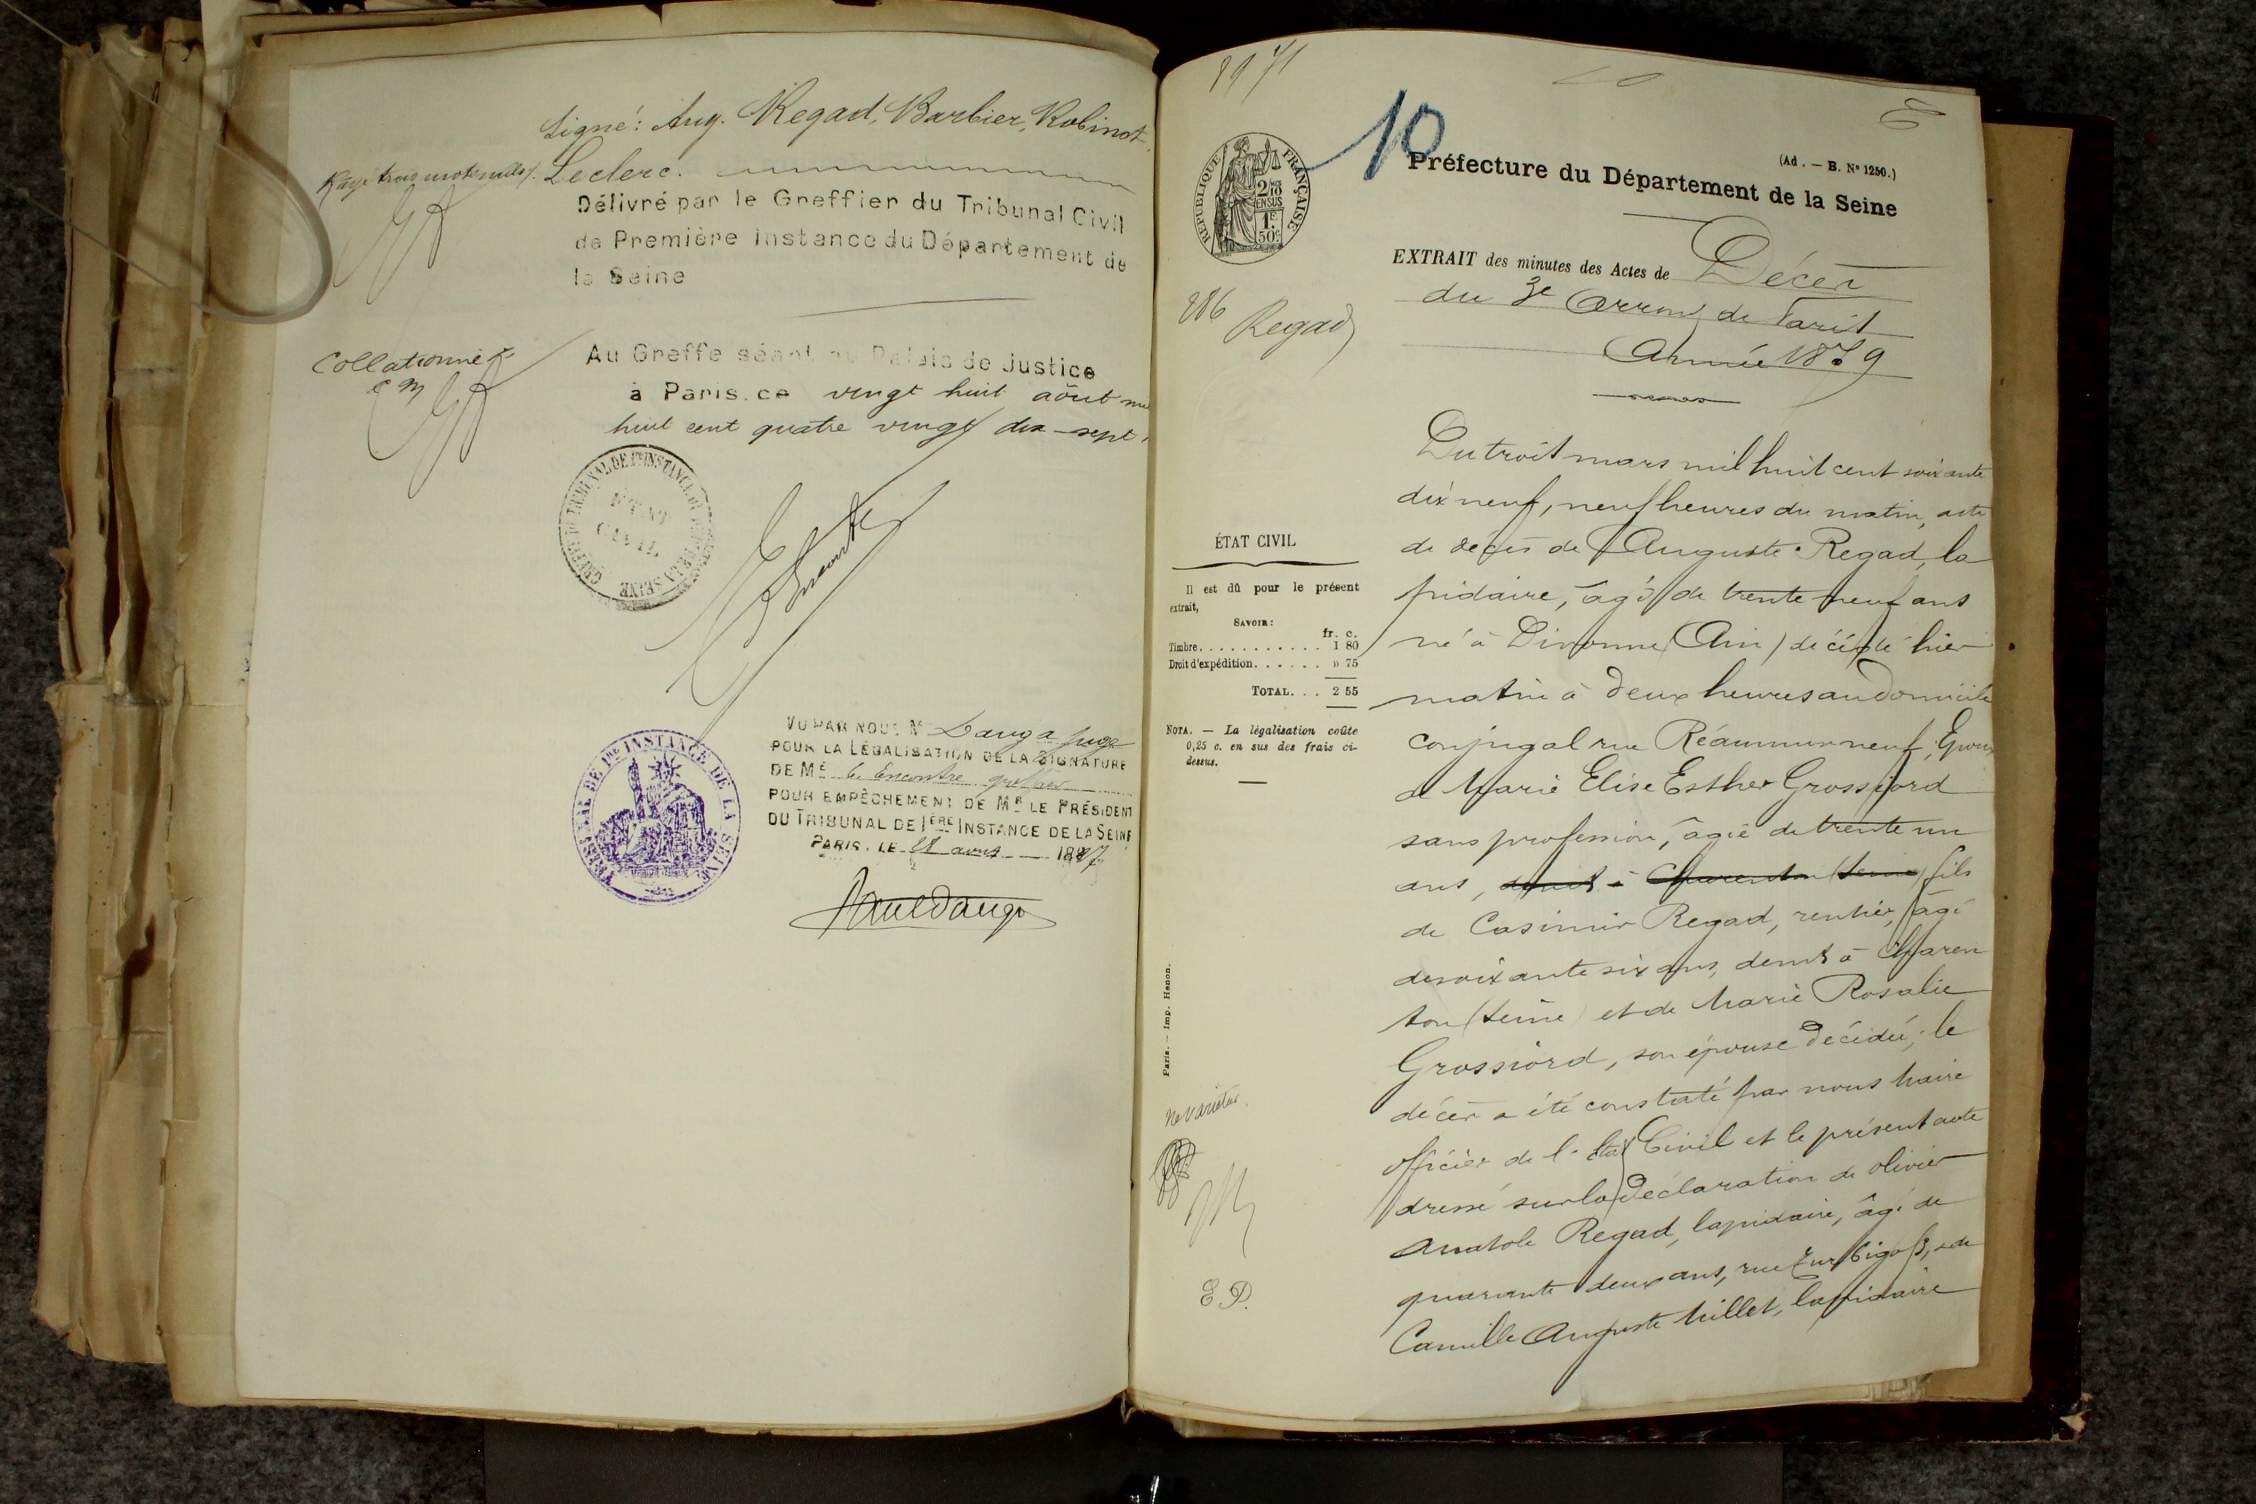 Signé: Aug. Regad, Barbier, Robinot
Leclerc.
Rayé trois mots nuls.
Délivré par le Greffier du Tribunal Civil
de Première Instance du Département de
la Seine
Collationné
Au Greffe séant au Palais de Justice
à Paris. ce vingt huit août mil
huit cent quatre vingt dix-sept.
GREFFE DU TRIBUNAL DE 1re INSTANCE DE LA SEINE
ETAT
CIVIL
VU PAR NOUS Mr Dauga juge
POUR LA LÉGALISATION DE LA SIGNATURE
DE ME Encontre greffier
POUR EMPÊCHEMENT DE MR LE PRÉSIDENT
DU TRIBUNAL DE 1ÈRE INSTANCE DE LA SEINE
PARIS, LE 28 août 1897
TRIBUNAL DE PRE INSTANCE DE LA SEINE
8971
10
RÉPUBLIQUE FRANÇAISE
2/10
EN SUS
1F
50c
(Ad. — B. Nº 1250.)
Préfecture du Département de la Seine
EXTRAIT des minutes des Actes de Décès
du 3e Arrond de Paris
Année 1879
886
Regad
Du trois mars mil huit cent soixante
dix neuf, neuf heures du matin, acte
de décès de Auguste Regad, la
pidaire, âgé de trente neuf ans
né à Divonne (Ain) décédé hier
matin à deux heures au domicile
conjugal rue Réaumur neuf, Epoux
de Marie Elise Esther Grossiord
sans profession, âgée de trente un
ans, demt à Charenton (Seine) fils
de Casimir Regad, rentier, âgé
de soixante six ans, demt à Charen
ton (Seine) et de Marie Rosalie
Grossiord, son épouse décédée; le
décès a été constaté par nous Maire
officier de l'Etat Civil et le présent acte
dressé sur la déclaration de Olivier
Anatole Regad, lapidaire, âgé de
quarante deux ans, rue Turbigo, de
Camille Auguste Millet, lapidaire
ÉTAT CIVIL
Il est dû pour le présent
extrait,
SAVOIR:
fr. c.
Timbre. . . . . . . . . . . . 1 80
Droit d'expédition. . . . . . » 75
TOTAL. . . 2 55
NOTA. — La légalisation coûte
0,25 c. en sus des frais ci-
dessus.
Paris. — Imp. Henon.
Ne varietur.
E P.